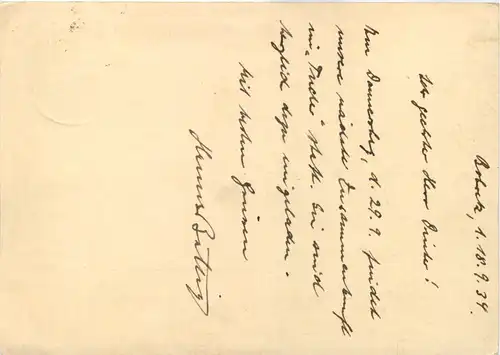 Rostock, d. 18.9.34.
Sehr geehrter Herr Winter!
Am Donnerstag, d. 29.9. findet
unsere nächste Zusammenkunft
im "Fuchs" statt. Sie sind
herzlich dazu eingeladen.
Mit besten Grüssen